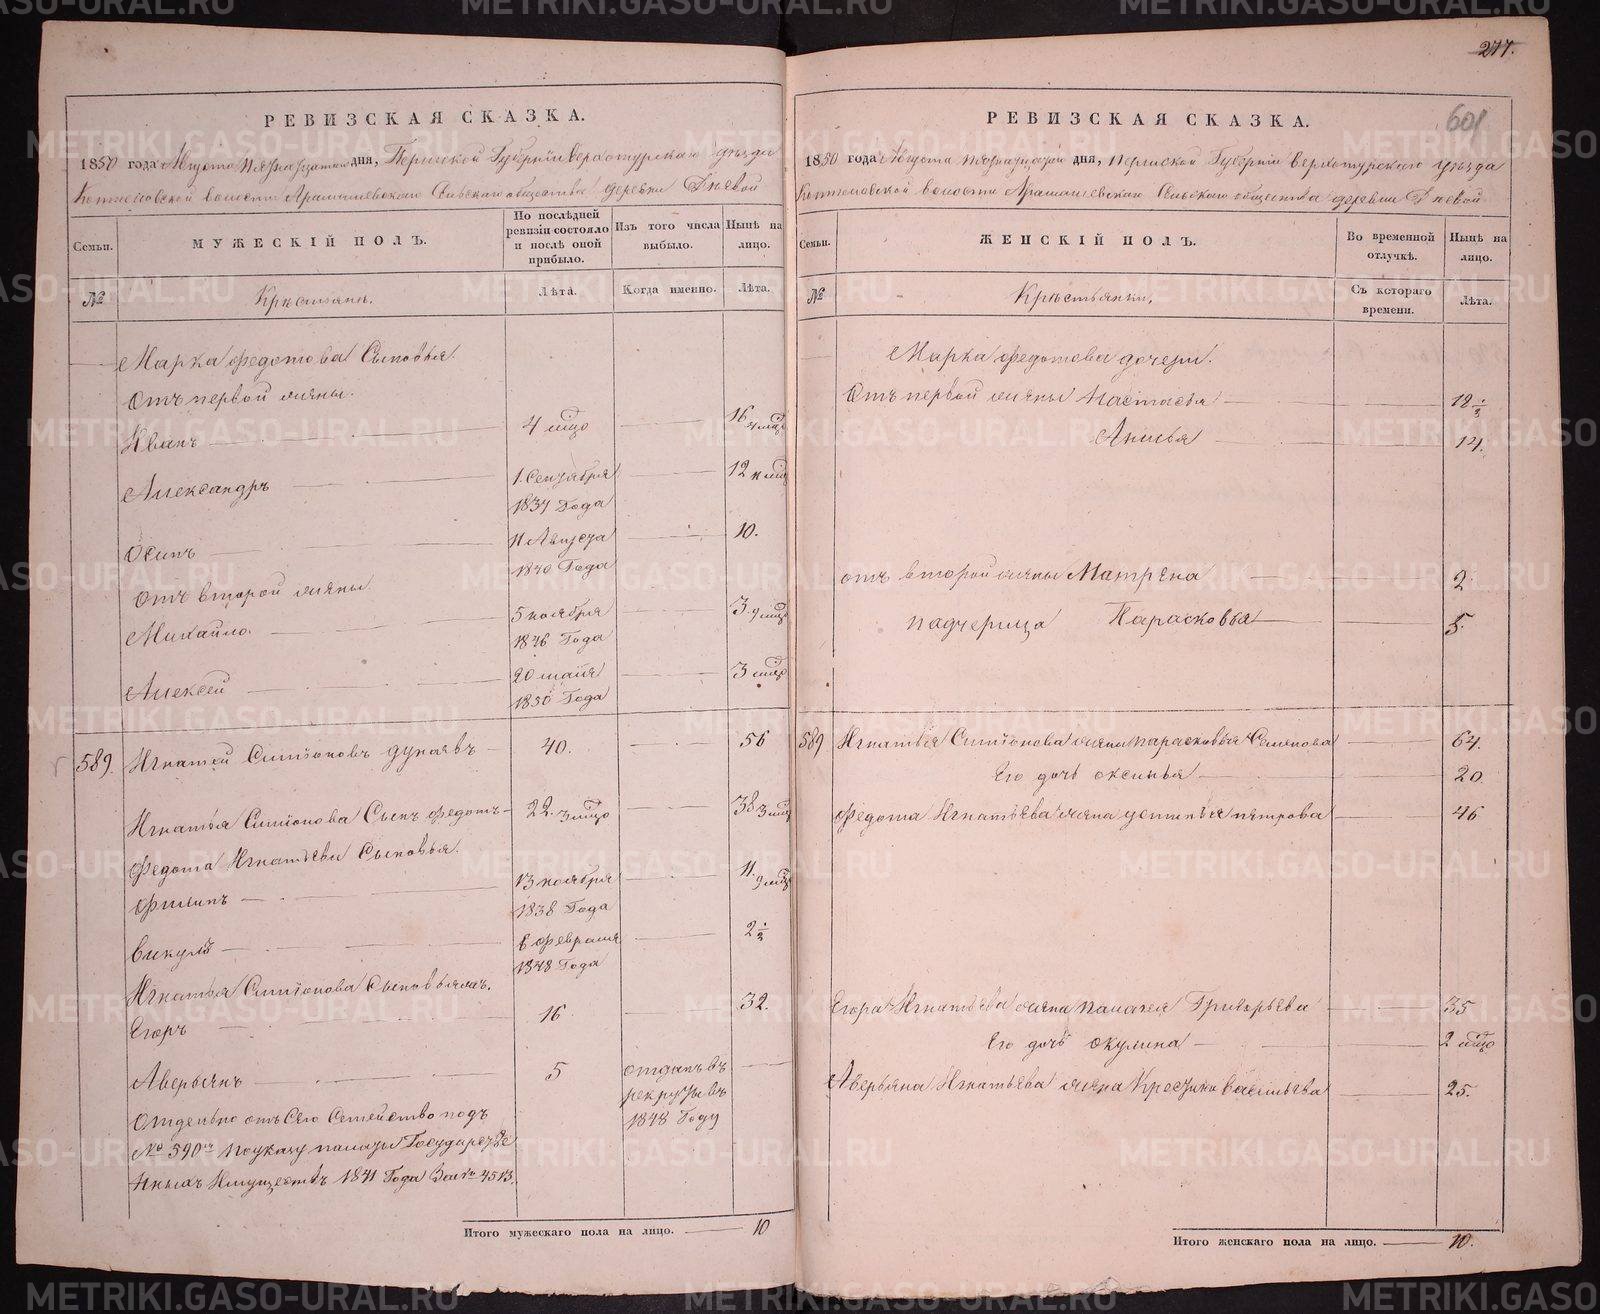 277.
601
РЕВИЗСКАЯ СКАЗКА.
1850 года Августа Пятнадцатого дня, Пермской Губернии Верхотурскаго уѣзда
Коптеловской волости Арамашевскаго Сельскаго общества деревни
Семьи.
МУЖЕСКІЙ ПОЛЪ.
По послѣдней ревизіи состояло и послѣ оной прибыло.
Изъ того числа выбыло.
Нынѣ на лицо.
№
Крѣстьяне.
Лѣта.
Когда именно.
Лѣта.
Марка Федотова Сыновья.
Отъ первой жѣны.
Иванъ 4 мѣсяца 16 4 мѣсяца
Александръ 1. Сентября 1837 Года 12 11 мѣсяц
Осипъ 11 Августа 1840 Года 10.
Отъ второй жѣны
Михайло. 5 ноября 1846 Года 3. 9 мѣсяц
Алексей 20 майя 1850 Года 3 мѣсяц
589. Игнатей Симіоновъ Дунаявъ 40. 56
Игнатья Симіонова Сынъ Федотъ 22. 3 мѣсяцо 38 3 мѣсяц
Федота Игнатьева Сыновья.
Филипъ 13 ноября 1838 Года 11. 9 мѣсяц
Викулъ 6 Февраля 1848 Года 2 1/2
Игнатья Симіонова Сыновьямъ.
Егоръ 16 32.
Аверьянъ 5 отданъ въ рекруты въ 1848 Году
Отдельно отъ Сего Семейство подъ
№ 590м по указу палаты Государстве
нныхъ Имуществъ 1841 Года За № 4513.
Итого мужескаго пола на лицо. 10
РЕВИЗСКАЯ СКАЗКА.
1850 года Августа Пятнадцатой дня, Пермской Губерніи Верхотурскаго уѣзда
Коптеловской волости Арамашевскаго Сельскаго общества деревни
Семьи.
ЖЕНСКІЙ ПОЛЪ.
Во временной отлучкѣ.
Нынѣ на лицо.
№
Крѣстьянки.
Съ котораго времени.
Лѣта.
Марка Федотова дочери.
Отъ первой жѣны Настасья 18 1/2
Анисья 14.
отъ второй жѣны Матрена 2.
падчерица Парасковья 5.
589 Игнатья Симіонова жена парасковья Семенова 64.
Его дочь оксинья 20
Федота Игнатьева жѣна устинья пятрова 46
Егора Игнатьева жѣна палагея Григорьева 35
Его дочь окулина 2 мѣсяцо
Аверьяна Игнатьева жѣна Крестина Васильева 25.
Итого женскаго пола на лицо. 10.